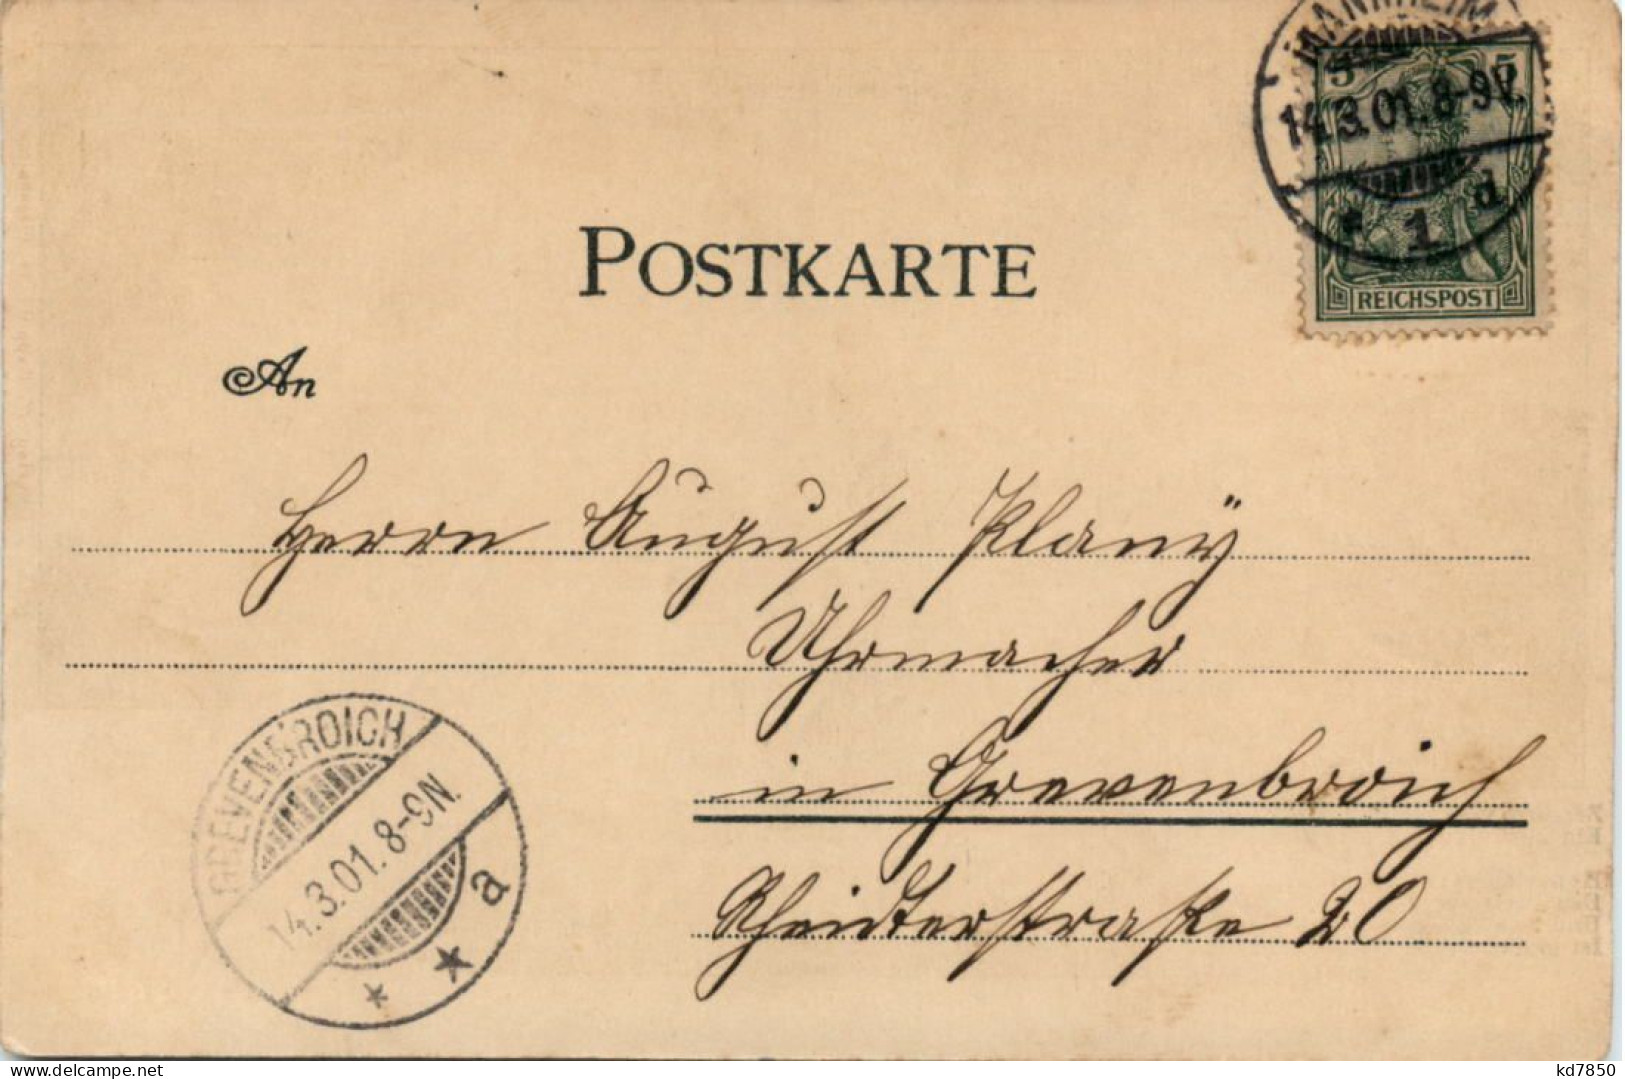 MANNHEIM
5 5
14.3.01. 8-9V.
* 1 d
REICHSPOST
POSTKARTE
An
Herrn August
Uhrmacher
in Grevenbroich
20
GREVENBROICH
14.3.01. 8-9N.
* * a
www.delcampe.net
kd7850